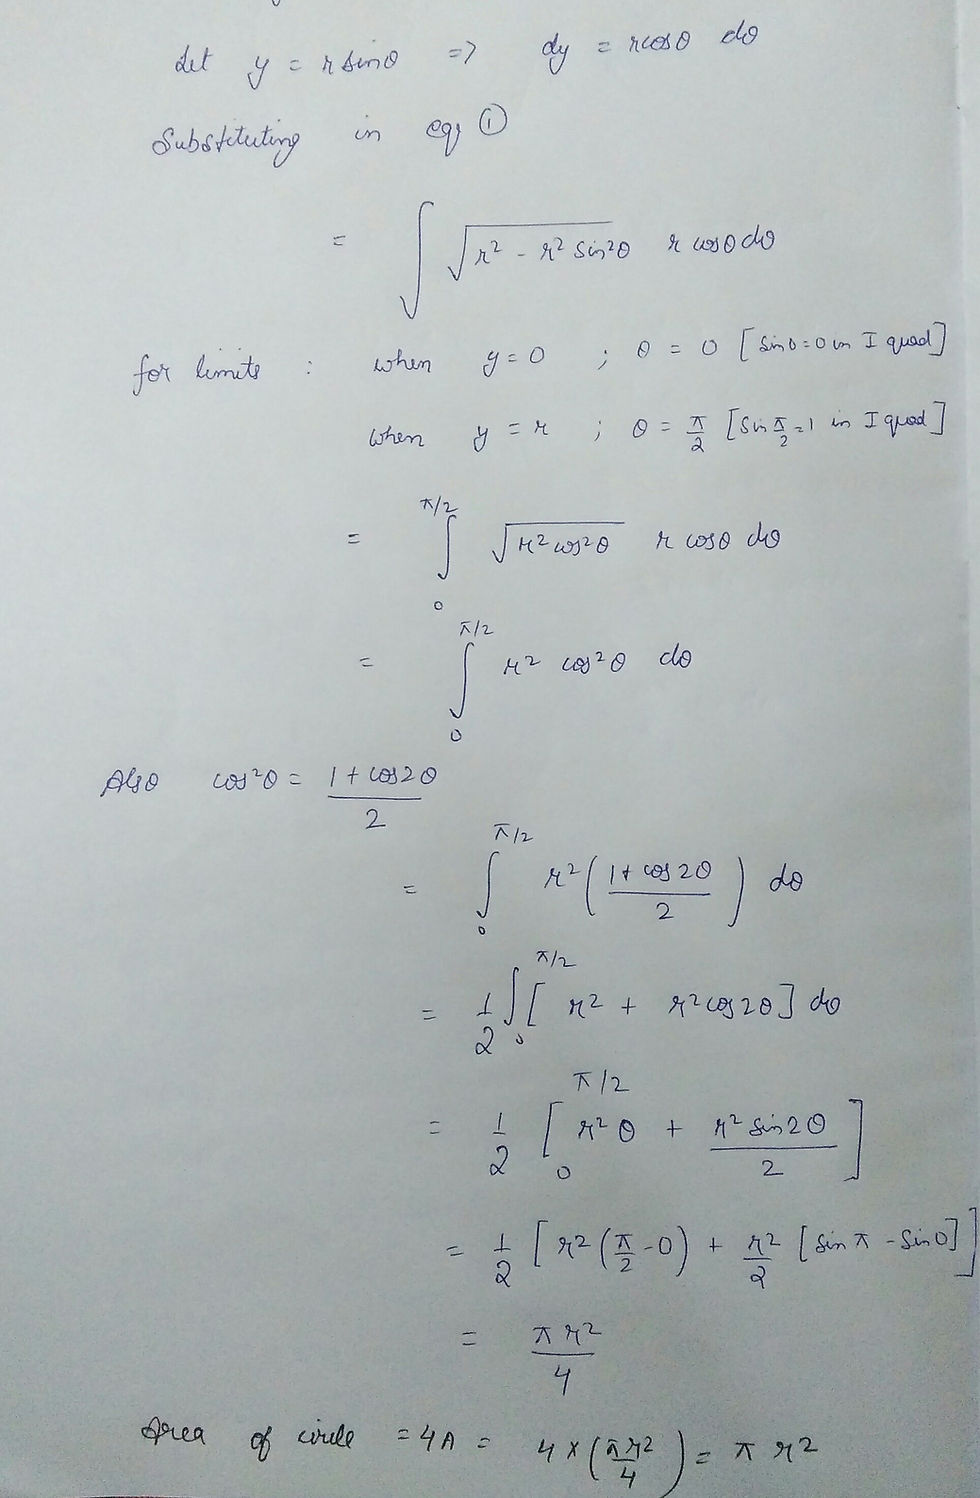 Let y = r sinθ => dy = r cosθ dθ
Substituting in eq ①
= ∫ √(r² - r² sin²θ) r cosθ dθ
for limits : when y = 0 ; θ = 0 [sin0 = 0 in I quad]
when y = r ; θ = π/2 [Sin π/2 = 1 in I quad]
= ∫₀^(π/2) √(r² cos²θ) r cosθ dθ
= ∫₀^(π/2) r² cos²θ dθ
Also cos²θ = (1 + cos2θ)/2
= ∫₀^(π/2) r² ((1 + cos 2θ)/2) dθ
= 1/2 ∫₀^(π/2) [r² + r² cos 2θ] dθ
= 1/2 [r² θ + (r² sin 2θ)/2]₀^(π/2)
= 1/2 [r² (π/2 - 0) + r²/2 [sin π - sin 0]]
= πr²/4
Area of circle = 4A = 4 × (πr²/4) = π r²